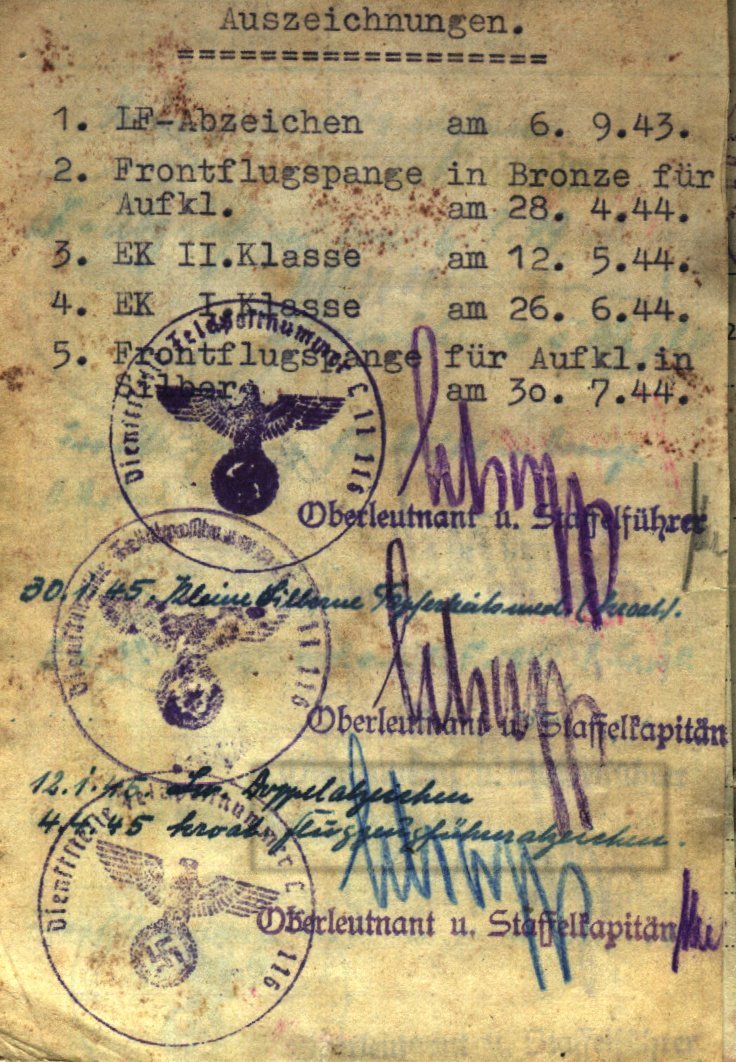 Auszeichnungen.
==================
1. LF-Abzeichen am 6. 9.43.
2. Frontflugspange in Bronze für
Aufkl. am 28. 4.44.
3. EK II.Klasse am 12. 5.44.
4. EK I.Klasse am 26. 6.44.
5. Frontflugspange für Aufkl.in
Silber am 3o. 7.44.
Dienststelle Feldpostnummer L 11 116
Oberleutnant u. Staffelführer
30.1.45. Kleine Silberne Tapferkeitsmed. (kroat).
Dienststelle Feldpostnummer 11 116
Oberleutnant u. Staffelkapitän
12.1.45 Doppelabzeichen
4.4.45 kroat. Flugzeugführerabzeichen.
Dienststelle Feldpostnummer L 116
Oberleutnant u. Staffelkapitän